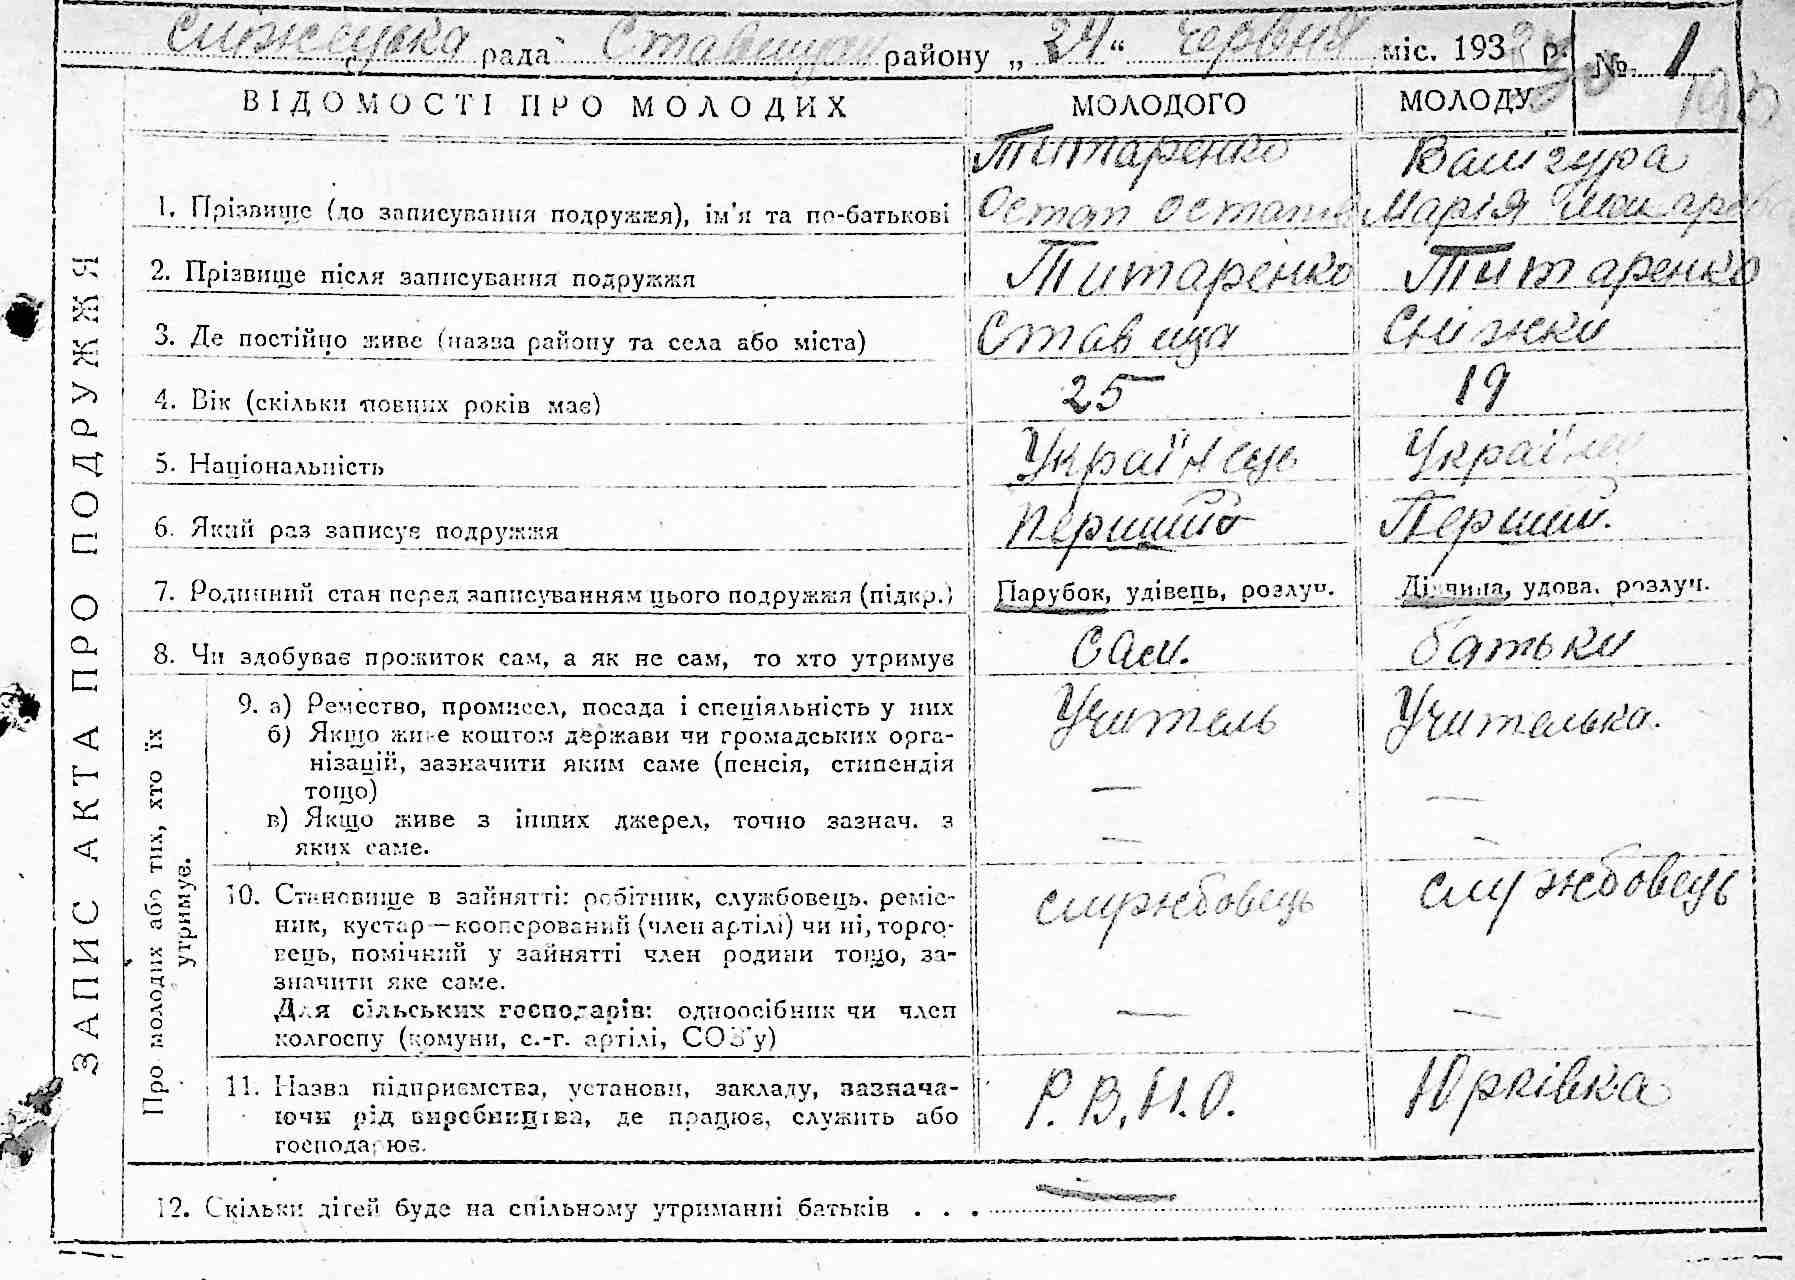 Сніжецька рада Ставищан району „24“ червня міс. 193 р. № 1
ВІДОМОСТІ ПРО МОЛОДИХ МОЛОДОГО МОЛОДУ
ЗАПИС АКТА ПРО ПОДРУЖЖЯ
Титаренко Вашгура
1. Прізвище (до записування подружжя), ім'я та по-батькові Остап Остапів Марія
2. Прізвище після записування подружжя Титаренко Титаренко
3. Де постійно живе (назва району та села або міста) Ставища Сніжки
4. Вік (скільки повних років має) 25 19
5. Національність Українець Україн
6. Який раз записує подружжя Перший Перший.
7. Родинний стан перед записуванням цього подружжя (підкр.) Парубок, удівець, розлуч. Дівчина, удова, розлуч.
8. Чи здобуває прожиток сам, а як не сам, то хто утримує Сам. батьки
Про молодих або тих, хто їх утримує.
9. а) Ремество, промисел, посада і спеціяльність у них Учитель Учителька.
б) Якщо живе коштом держави чи громадських орга-
нізацій, зазначити яким саме (пенсія, стипендія
тощо) — —
в) Якщо живе з інших джерел, точно зазнач. з — —
яких саме.
10. Становище в зайнятті: робітник, службовець, реміс- службовець службовець
ник, кустар—кооперований (член артілі) чи ні, торго-
вець, помічний у зайнятті член родини тощо, за-
значити яке саме.
Для сільських господарів: одноосібник чи член — —
колгоспу (комуни, с.-г. артілі, СОЗ'у)
11. Назва підприємства, установи, закладу, зазнача- Р.В.Н.О. Юрківка
ючи рід виробництва, де працює, служить або
господарює.
12. Скільки дітей буде на спільному утриманні батьків . . . —